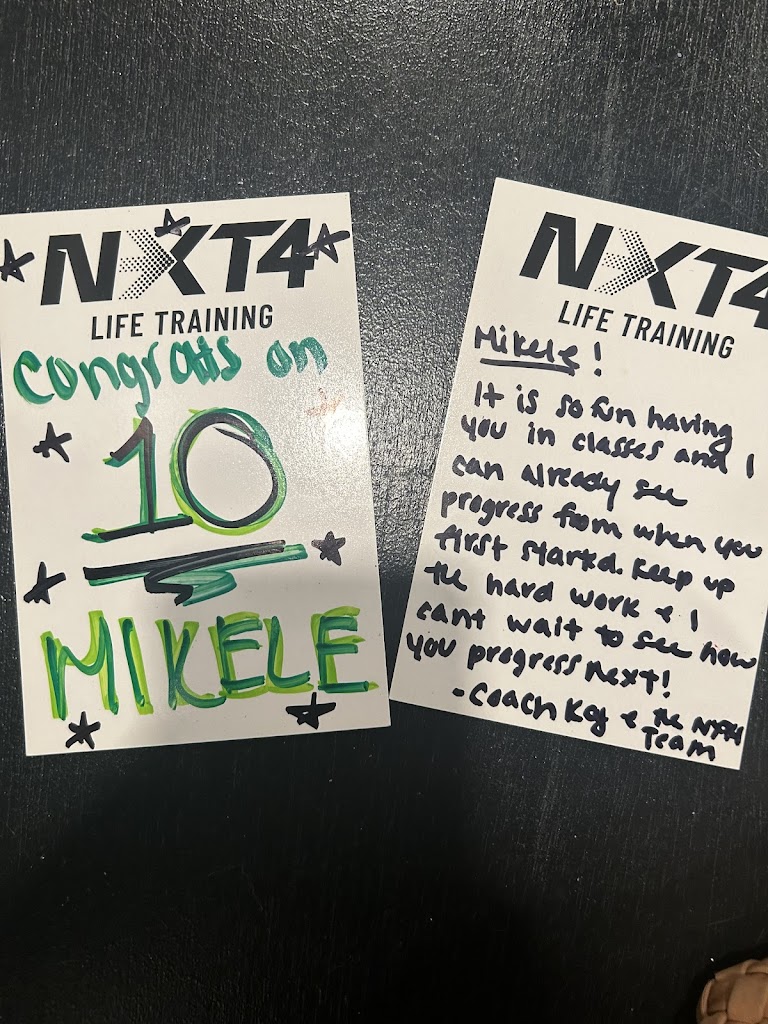 NXT4
LIFE TRAINING
Congrats on
10
MIKELE
NXT4
LIFE TRAINING
Mikele!
It is so fun having
you in classes and I
can already see
progress from when you
first started. Keep up
the hard work & I
cant wait to see how
you progress next!
-Coach Key & the NXT4
Team